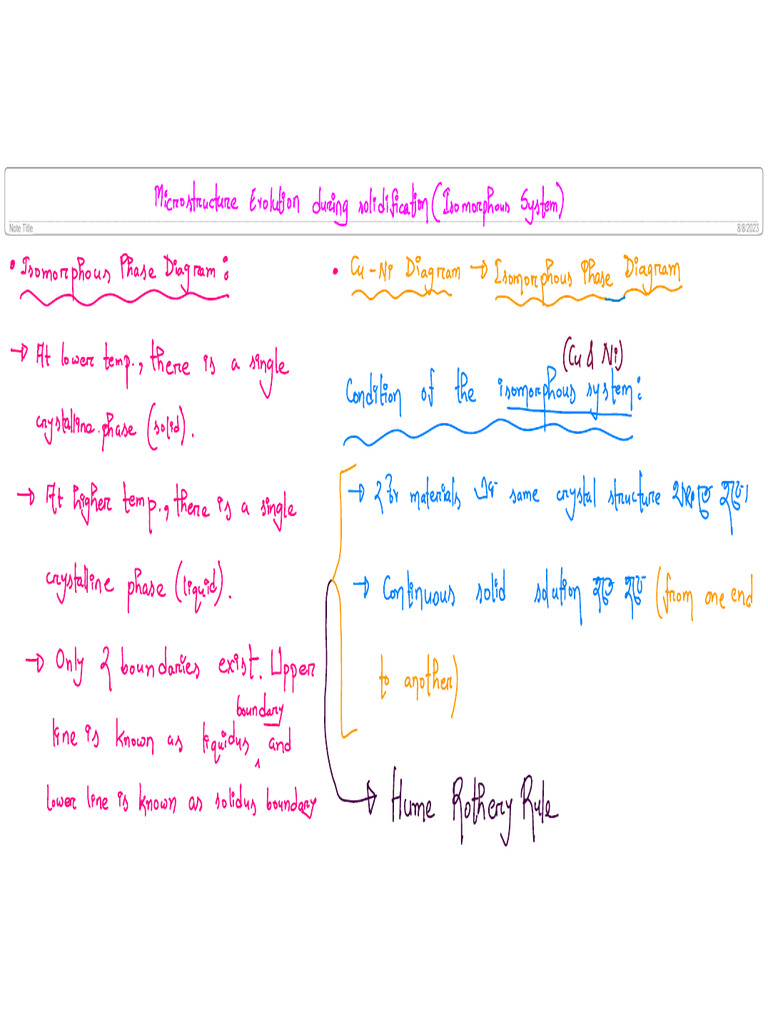 Microstructure Evolution during solidification (Isomorphous System)
Note Title
8/8/2023
• Isomorphous Phase Diagram:
→ At lower temp., there is a single
crystalline phase (solid).
→ At higher temp., there is a single
crystalline phase (liquid).
→ Only 2 boundaries exist. Upper
boundary
line is known as liquidus ‸ and
lower line is known as solidus boundary
• Cu-Ni Diagram → Isomorphous Phase Diagram
(Cu & Ni)
Condition of the isomorphous system:
→ 2 টা materials এর same crystal structure থাকতে হবে।
→ Continuous solid solution হতে হবে (from one end
to another)
→ Hume Rothery Rule